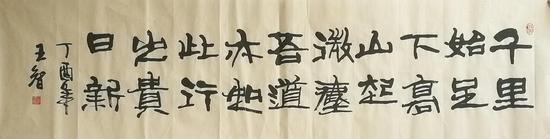 千里
始足
下高
山起
微塵
吾道
亦如
此行
之貴
日新
丁酉年
王智